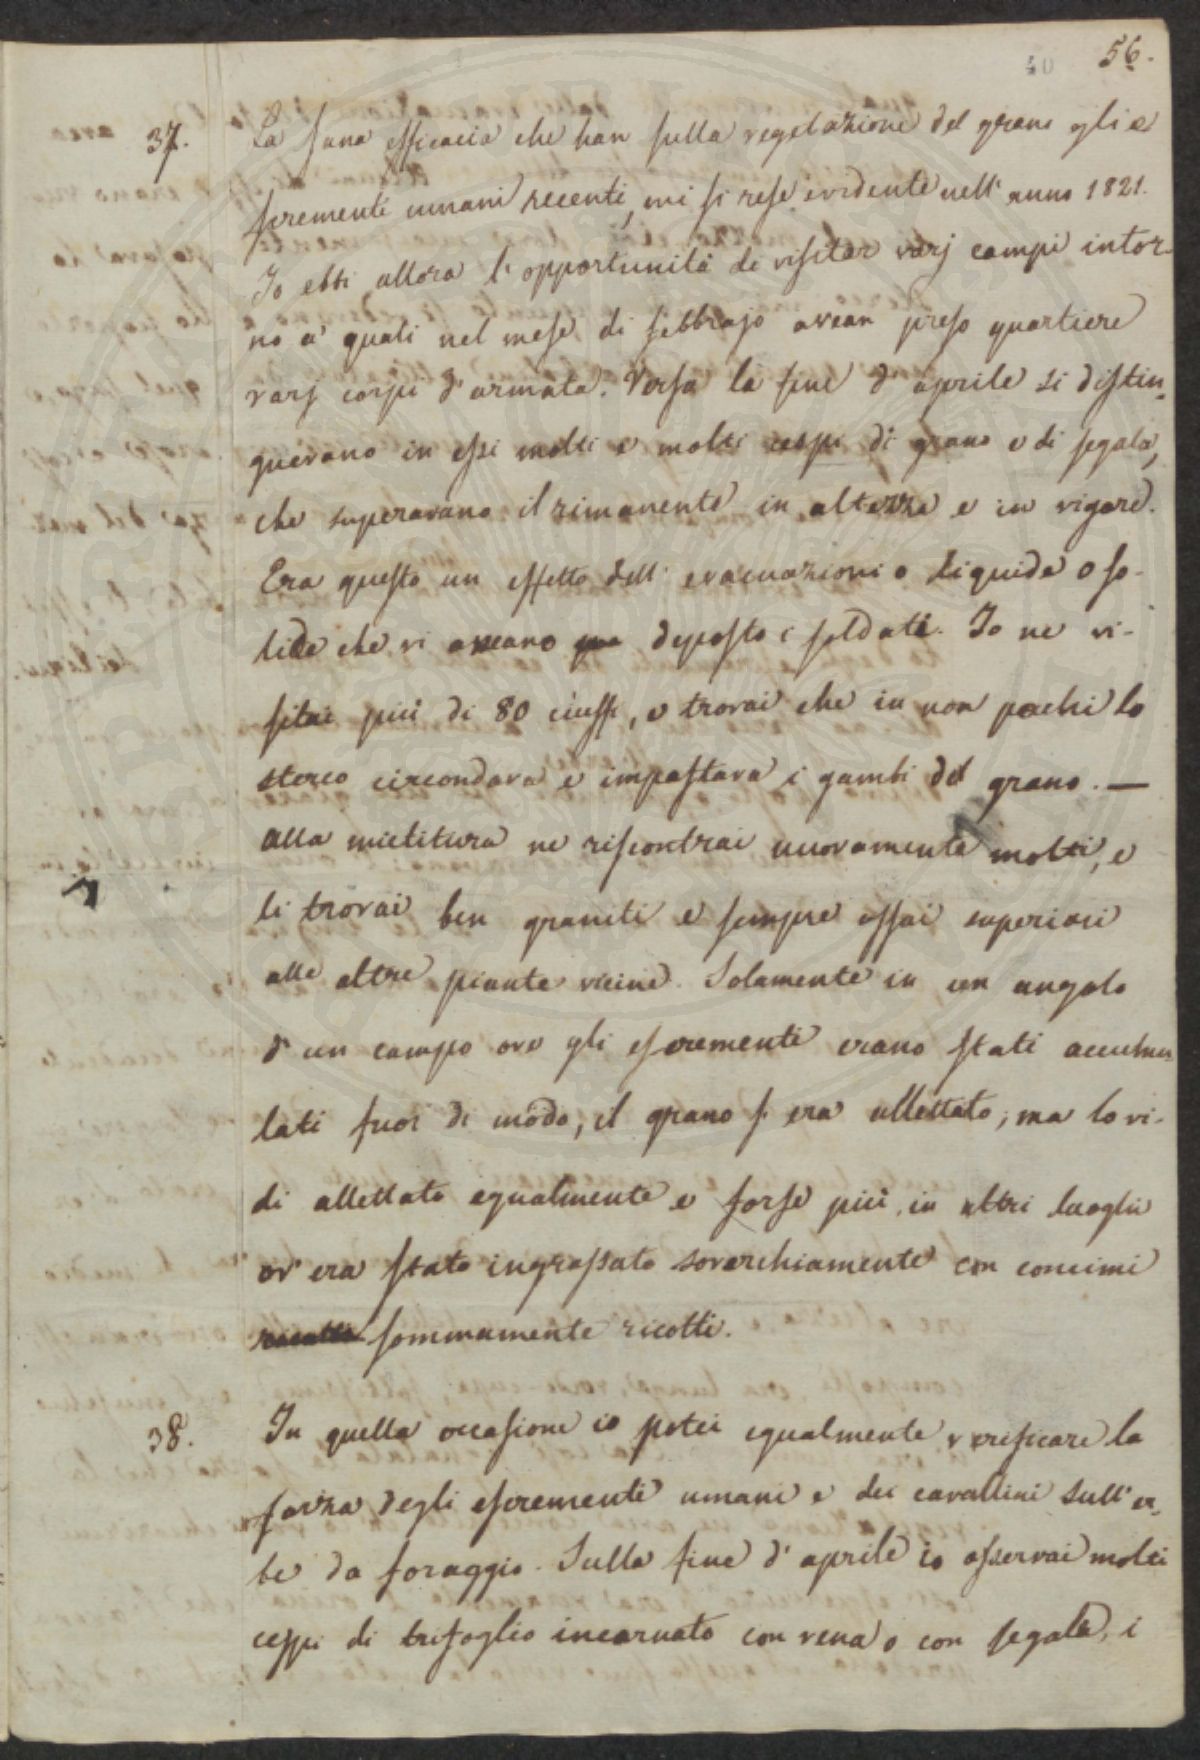 40 56.
37. La sana efficacia che han sulla vegetazione del grano gli e
scrementi umani recenti, mi si rese evidente nell' anno 1821.
Io ebbi allora l'opportunità di visitar varj campi intor-
no a' quali nel mese di febbrajo avean preso quartiere
varj corpi d'armata. Verso la fine d'aprile si distin-
guevano in essi molti e molti cespi di grano e di segala,
che superavano il rimanente in altezza e in vigore.
Era questo un effetto dell' evacuazioni o liquide o so-
lide che vi aveano deposto i soldati. Io ne vi-
sitai più di 80 ciuffi, e trovai che in non pochi lo
sterco circondava e impastava i gambi del grano. —
alla mietitura ne riscontrai nuovamente molti, e
li trovai ben graniti e sempre assai superiori
alle altre piante vicine. Solamente in un angolo
d'un campo ove gli escrementi erano stati accumu-
lati fuor di modo, il grano s'era allettato; ma lo vi-
di allettato egualmente e forse più in altri luoghi
ov' era stato ingrassato soverchiamente con concimi
sommamente ricotti.
38. In quella occasione io potei egualmente verificare la
forza degli escrementi umani e dei cavallini sull' er-
be da foraggio. Sulla fine d'aprile io osservai molti
cespi di trifoglio incarnato con vena o con segala, i